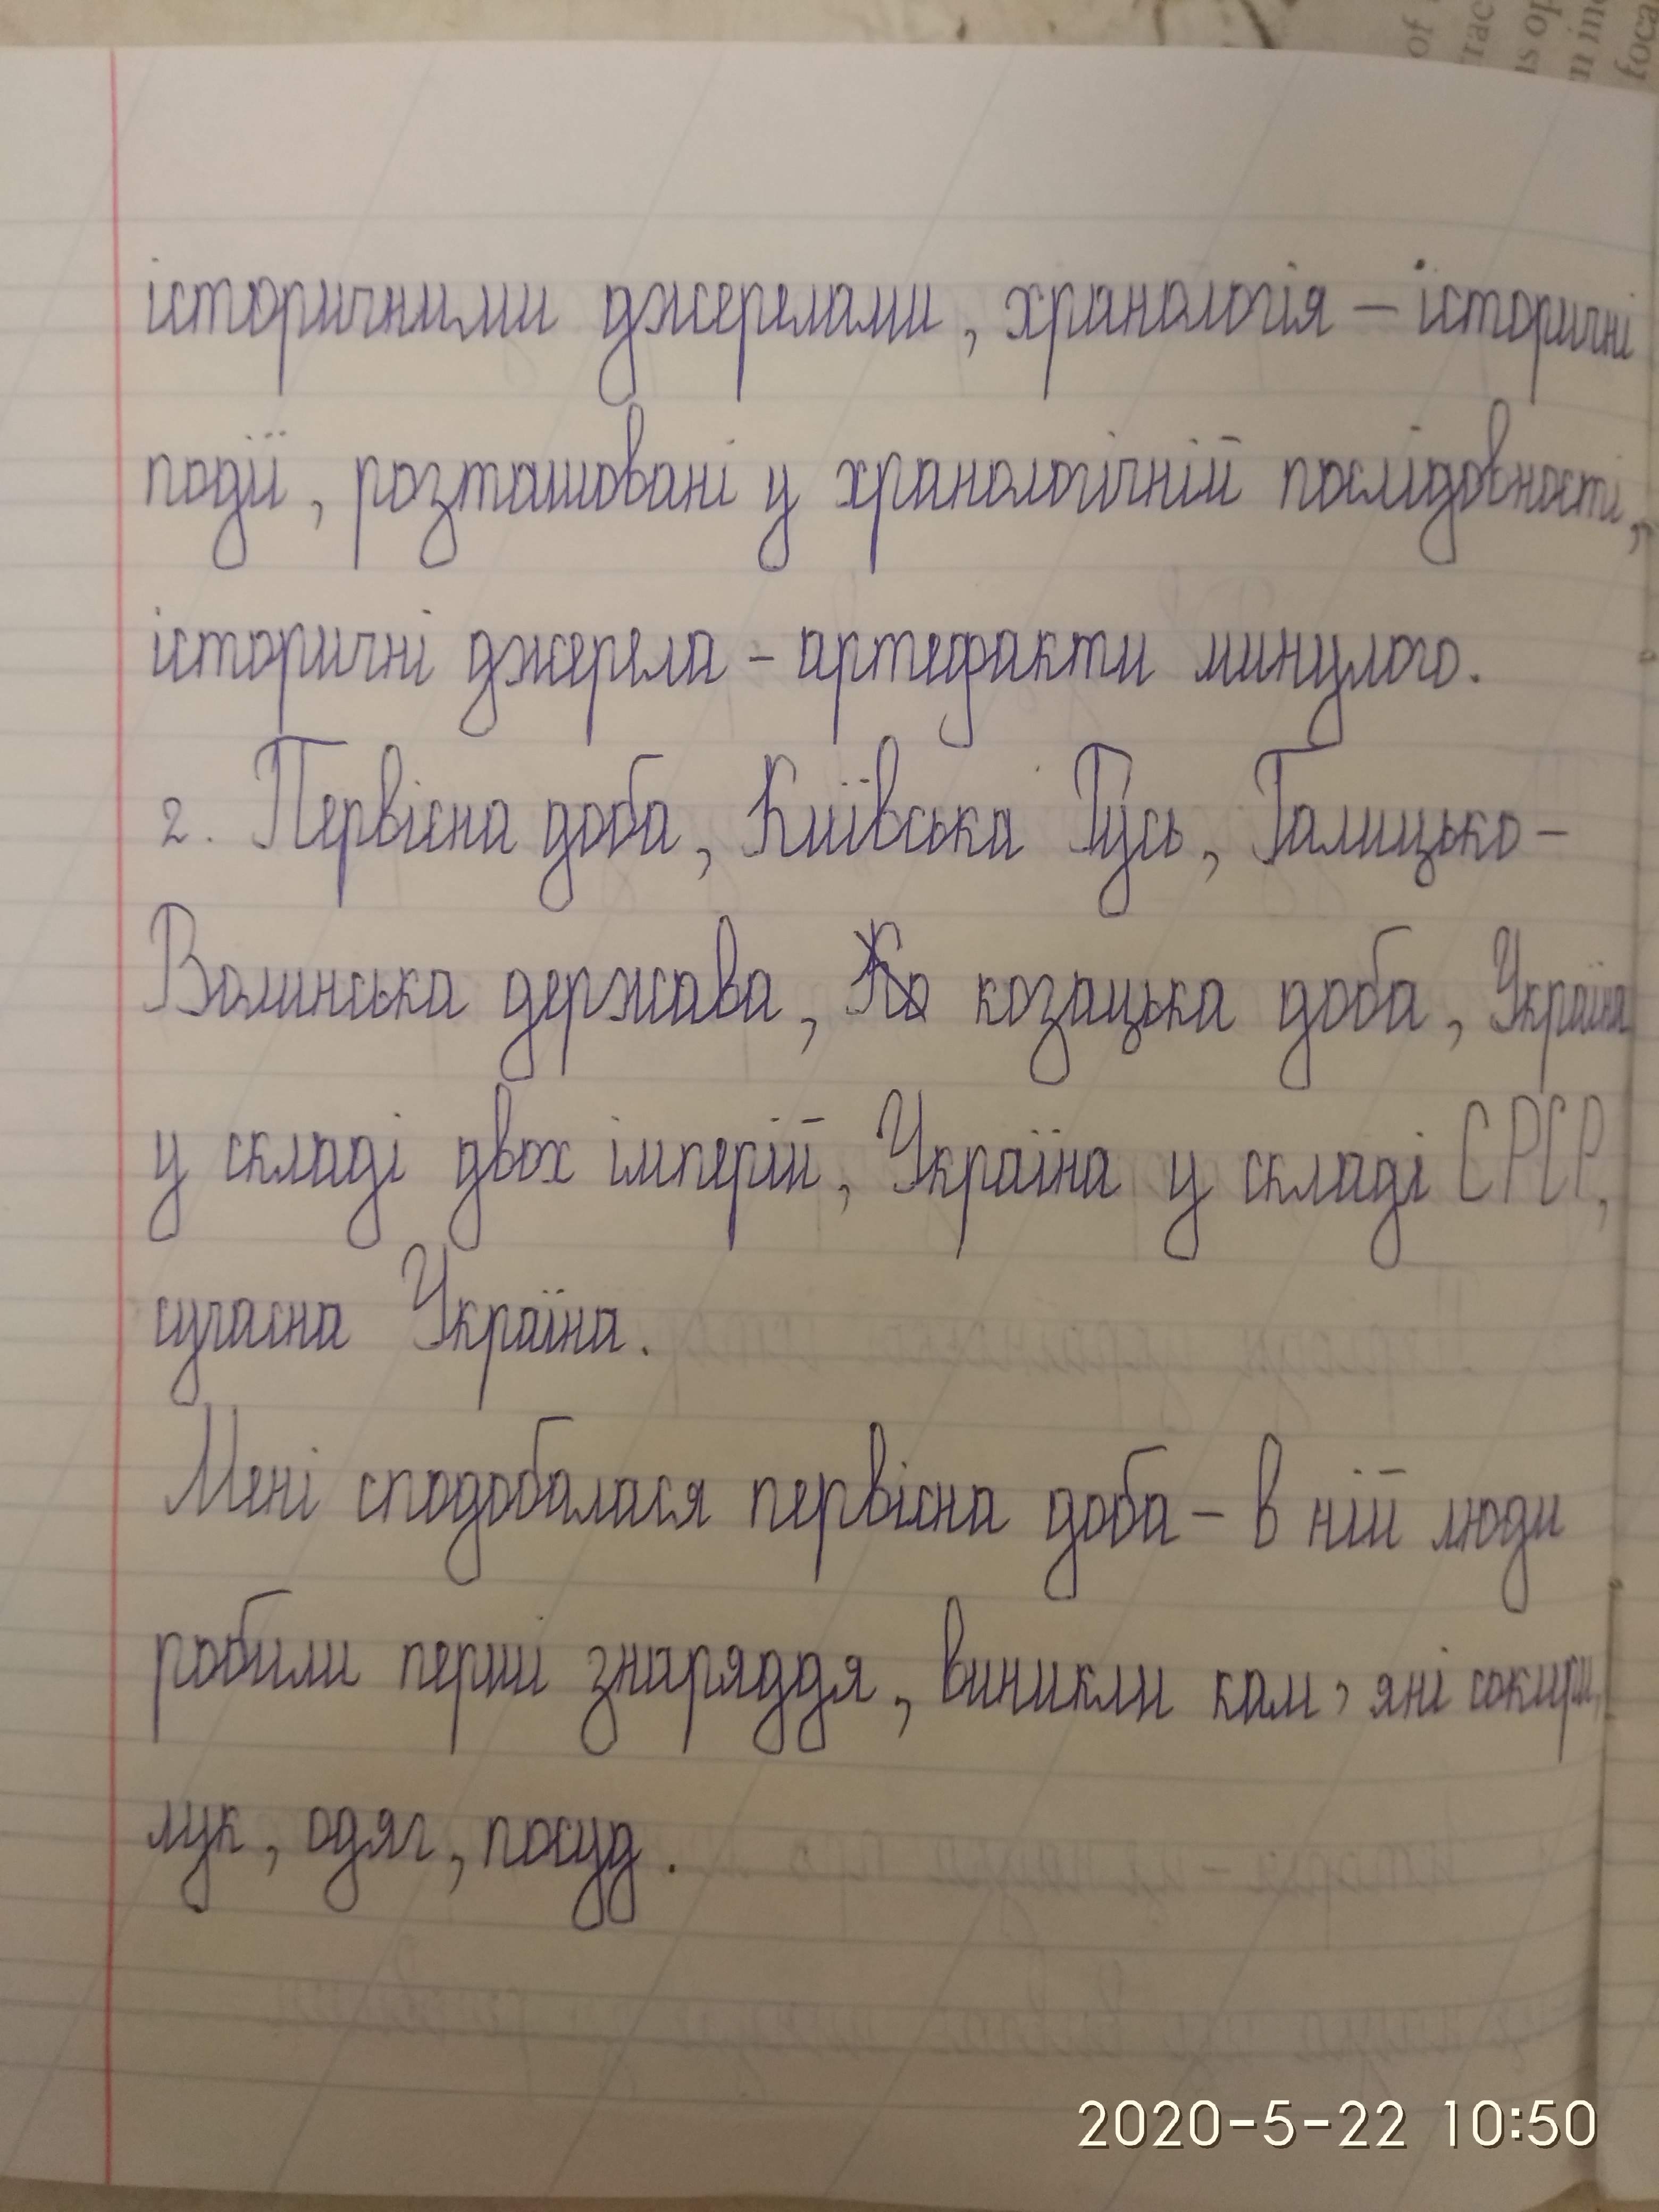 історичними джерелами, хранологія – історичні
події, розташовані у хранологічній послідовності,
історичні джерела – артефакти минулого.
2. Первісна доба, Київська Русь, Галицько–
Волинська держава, Ко козацька доба, Україна
у складі двох імперій, Україна у складі СРСР,
сучасна Україна.
Мені сподобалася первісна доба – в ній люди
робили перші знаряддя, виникли кам'яні сокири,
лук, одяг, посуд.
2020-5-22 10:50